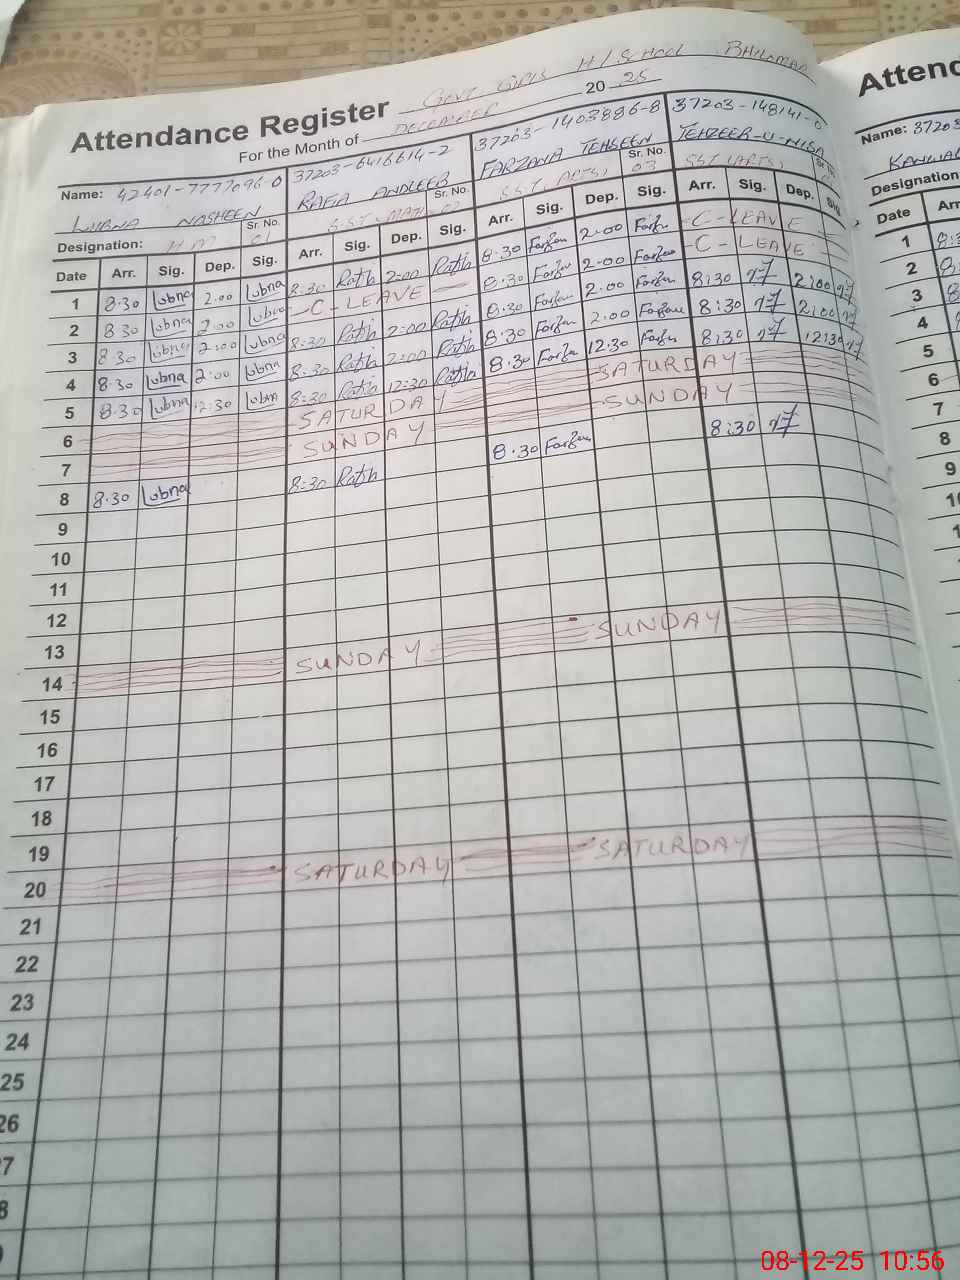 Attendance Register GOVT. GIRLS H/SCHOOL BHILOMAR
For the Month of DECEMBER 20 25
Name: 42401-7777096-0 37203-6416614-2 37203-1403886-8 37203-148141-0
LUBNA NASHEEN RAFIA ANDLEEB FARZANA TEHSEEN TEHZEER-U-NISA
Designation: H M Sr. No. 01 S.S.T Sr. No. S.S.T. ARTS, Sr. No. 03 SST (ARTS)
Date Arr. Sig. Dep. Sig. Arr. Sig. Dep. Sig. Arr. Sig. Dep. Sig. Arr. Sig. Dep. Sig.
1 8:30 Lubna 2:00 Lubna 8:30 2:00 8:30 2:00 -C-LEAVE
2 8:30 Lubna 2:00 Lubna -C-LEAVE- 8:30 2:00 -C-LEAVE
3 8:30 Lubna 2:00 Lubna 8:30 2:00 8:30 2:00 8:30 2:00
4 8:30 Lubna 2:00 Lubna 8:30 2:00 8:30 2:00 8:30 2:00
5 8:30 Lubna 12:30 Lubna 8:30 12:30 8:30 12:30 8:30 12:30
6 SATURDAY SATURDAY
7 SUNDAY SUNDAY
8 8:30 Lubna 8:30 8:30 8:30
9
10
11
12
13
14 SUNDAY SUNDAY
15
16
17
18
19
20 SATURDAY SATURDAY
21
22
23
24
25
26
7
8
Atten
Name: 37203
Designation
Date Arr
1 8:3
2 8:
3
4
5
6
7
8
9
10
08-12-25 10:56